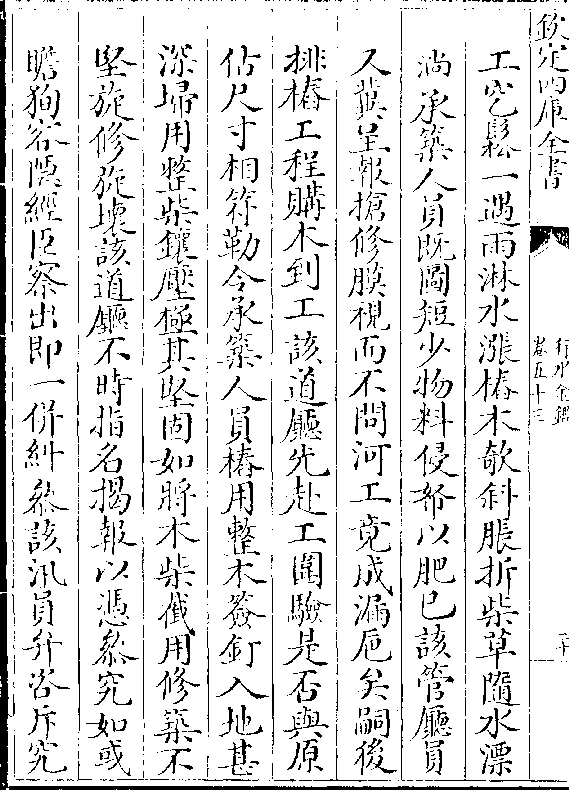 欽定四庫全書
行水金鑑
卷五十三
工空鬆一遇雨淋水漲樁木欹斜脹折柴草隨水漂
淌承築人員既圖短少物料侵帑以肥已該管廳員
又冀呈報搶修膜視而不問河工竟成漏巵矣嗣後
排樁工程購木到工該道廳先赴工圍驗是否與原
估尺寸相符勒令承築人員樁用整木簽釘入地甚
深埽用整柴鑲壓極其堅固如將木柴儎用修築不
堅旋修旋壞該道廳不時指名揭報以憑叅究如或
瞻狥容隱經臣察出即一併糾叅該汛員弁咨斥究